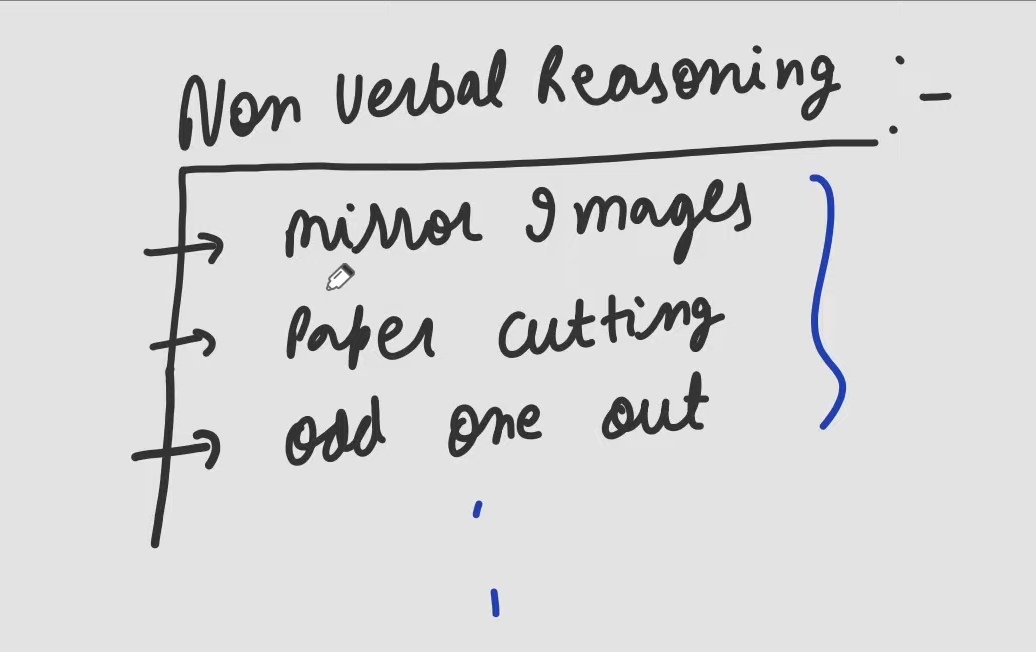 Non Verbal Reasoning :-
→ mirror Images
→ Paper cutting
→ odd one out